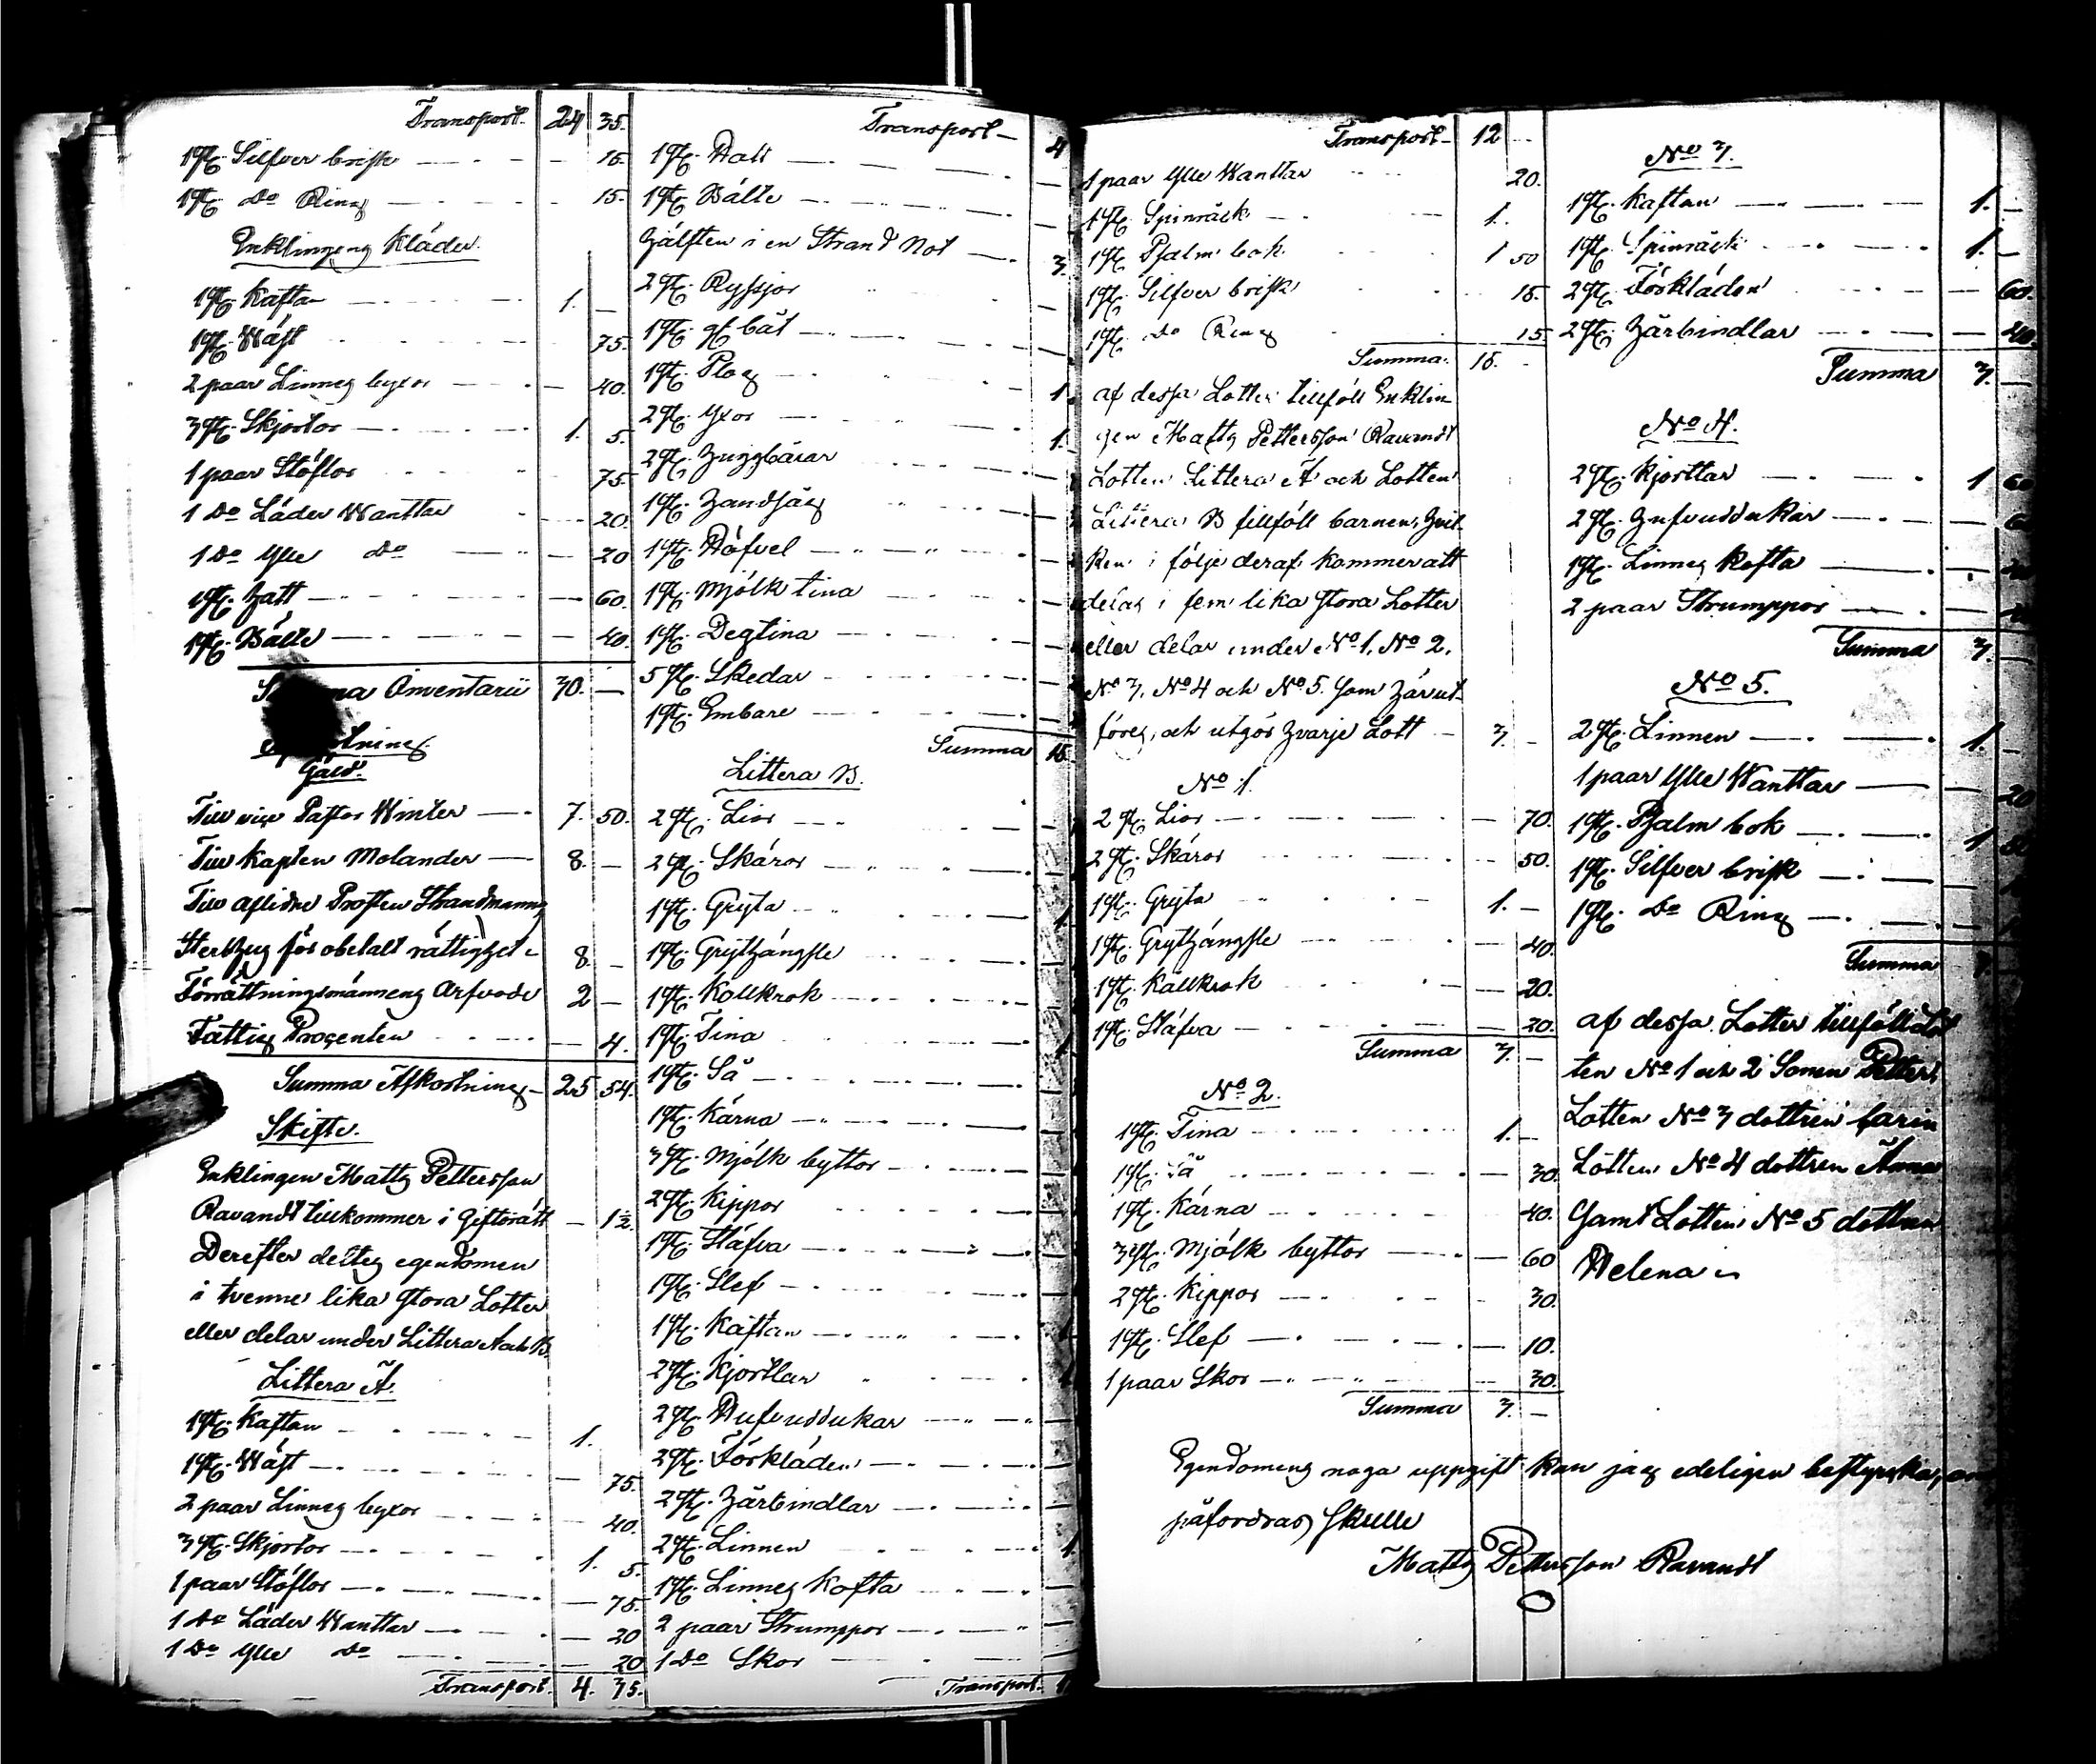 Transport. 24 35.
1 st. Silfver brisk 15.
1 st. Do Ring 15.
Enklingens Kläder.
1 st. Kaftan 1. –
1 st. Wäst 75.
2 paar Linnes byxor 40.
3 st. Skjortor 1. 5.
1 paar Stöflor 75.
1 Do Läder Wanttar 20.
1 Do Ylle Do 20
1 st. Hatt 60.
1 st. Bälte 40.
Inventarii 30. –
Gäld.
Till vice Pastor Winter 7. 50.
Till Kapten Molander 8. –
Till aflidne Prosten Strandmanns
Sterbhus för obetalt rättighet 8. –
Förrättningsmännens Arfvode 2 –
Fattig Procenten 4.
Summa Afkortning 25 54.
Skifte.
Enklingen Matts Pettersson
Ravandt tillkommer i Giftorätt – 1/2
Derefter deltes egendomen
i tvenne lika stora Lotter
eller delar under Littera A och B.
Littera A.
1 st. Kaftan 1.
1 st. Wäst 75.
2 paar Linnes byxor 40.
3 st. Skjortor 1. 5.
1 paar Stöflor 75.
1 Do Läder Wanttar 20
1 Do Ylle Do 20
Transport. 4. 75.
Transport 4
1 st. Hatt
1 st. Bälte
Hälften i en Strand Not 3
2 st. Ryssjor
1 st. båt
1 st. Plog 1
2 st. Yxor 1.
2 st. Huggbärar
1 st. Handsåg
1 st. Höfvel
1 st. Mjölk tina
1 st. Degtina
5 st. Skedar
1 st. Embare
Summa 15.
Littera B.
2 st. Lior
2 st. Skäror
1 st. Gryta 1
1 st. Grythängsle
1 st. Kollkrok
1 st. Tina 1
1 st. Så
1 st. Kärna
3 st. Mjölk byttor
2 st. Kippor
1 st. Stäfva
1 st. Slef
1 st. Kaftan 1
2 st. Kjorttar 1
2 st. Hufvuddukar
2 st. Förkläden
2 st. Hårbindlar
2 st. Linnen 1.
1 st. Linnes Kofta
2 paar Strumppor
1 Do Skor
Transport.
Transport 12
1 paar Ylle Wanttar 20.
1 st. Spinräck 1.
1 st. Psalm bok 1 50
1 st. Silfver brisk 15.
1 st. Do Ring 15.
Summa. 15. –
af dessa Lotter tillföll Enklin
gen Matts Pettersson Ravandt
Lotten Littera A och Lotten
Littera B tillföll barnen, hvil
ken i följe deraf kommer att
delas i fem lika stora Lotter
eller delar under No 1, No 2,
No 3, No 4 och No 5. som här ut-
föres, och utgör hvarje Lott 3. –
No 1.
2 st. Lior 70.
2 st. Skäror 50.
1 st. Gryta 1. –
1 st. Grythängsle 40.
1 st. Kallkrok 20.
1 st. Stäfva 20.
Summa 3. –
No 2.
1 st. Tina 1. –
1 st. Så 30.
1 st. Kärna 40.
3 st. Mjölk byttor 60
2 st. Kippor 30.
1 st. Slef 10.
1 paar Skor 30.
Summa 3. –
No 3.
1 st. Kaftan 1. –
1 st. Spinräck 1. –
2 st. Förkläden 60.
2 st. Hårbindlar 40.
Summa 3. –
No 4.
2 st. Kjorttar 1 60
2 st. Hufvuddukar
1 st. Linnes Kofta
2 paar Strumppor
Summa 3. –
No 5.
2 st. Linnen 1. –
1 paar Ylle Wanttar 20
1 st. Psalm bok 1 50
1 st. Silfver brisk
1 st. Do Ring
Summa
af dessa Lotter tillföll Lot
ten No 1 och 2 Sonen Petter,
Lotten No 3 dottren Carin
Lotten No 4 dottren Anna
samt Lotten No 5 dottren
Helena
Egendomens noga uppgift kan jag edeligen bestyrka, om
påfordras skulle
Matts Pettersson Ravandt